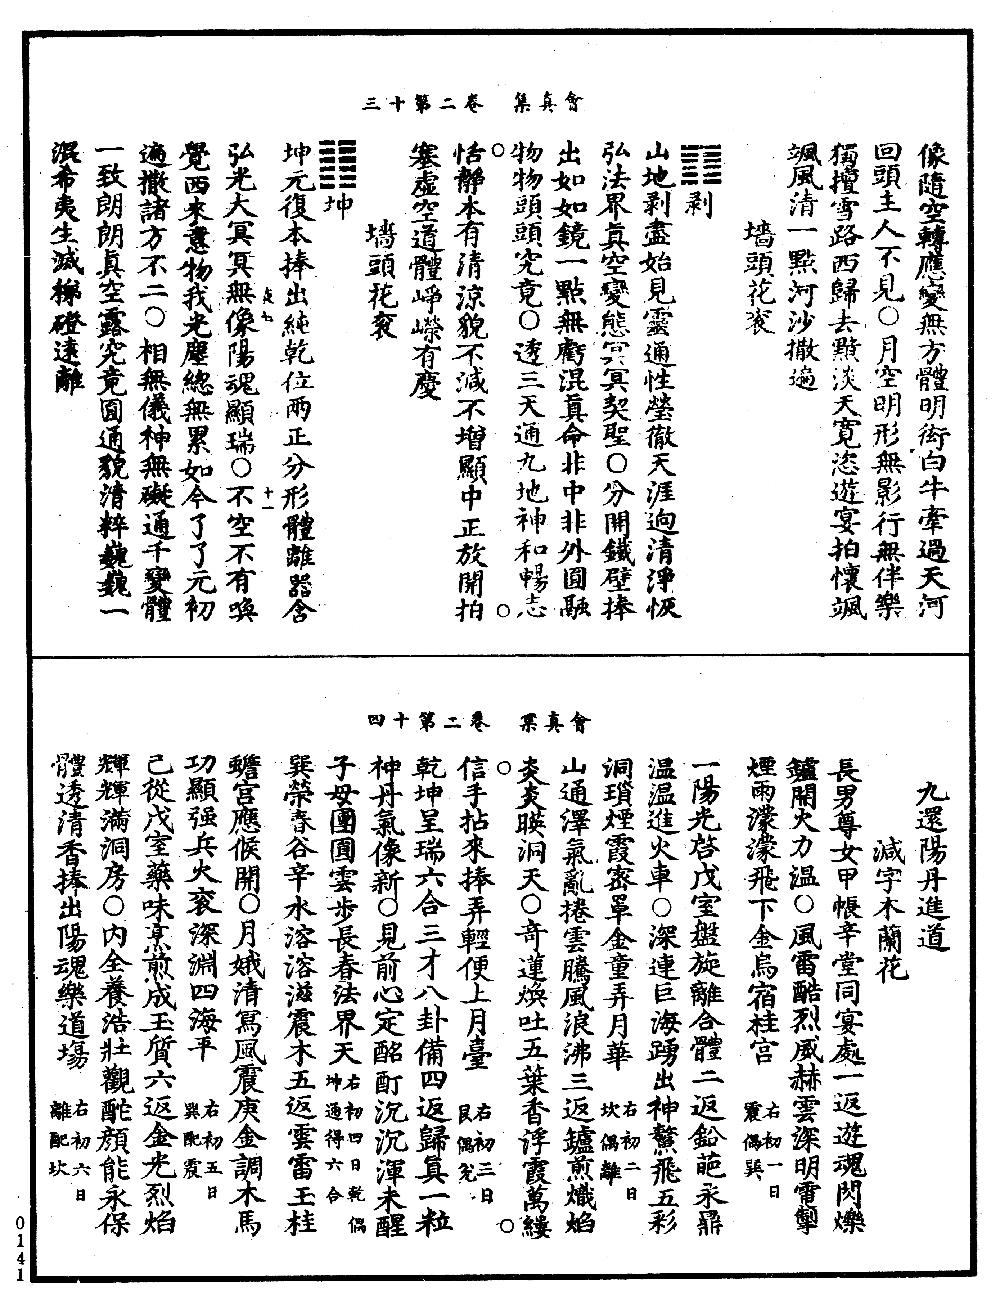 會真集　卷二第十三
像隨空轉應變無方體明衒白牛牽過天河
回頭主人不見○月空明形無影行無伴樂
獨擅雪路西歸去黯淡天寬恣遊宴拍懷颯
颯風清一點河沙撒遍
墻頭花衮
䷖剥
山地剥盡始見靈通性瑩徹天涯逈清淨恢
弘法界真空變態冥冥契聖○分開鐵壁捧
出如如鏡一點無虧混真命非中非外圓融
物物頭頭究竟○透三天通九地神和暢志
○恬靜本有清涼貌不減不增顯中正放開拍
塞虛空道體崢嶸有慶
墻頭花衮
䷁坤
坤元復本捧出純乾位兩正分形體離器含
弘光大冥冥無像陽魂顯瑞○不空不有喚
覺西來意物我光塵總無累如今了了元初
遍撒諸方不二○相無儀神無礙通千變體
一致朗朗真空露究竟圓通貌清粹巍巍一
混希夷生滅梯磴遠離
十一
會真集　卷二第十四
九還陽丹進道
減字木蘭花
長男尊女甲帳辛堂同宴處一返遊魂閃爍
鑪開火力溫○風雷酷烈威赫雲深明電掣
煙雨濛濛飛下金烏宿桂宮　右初一日震偶巽
一陽光啓戊室盤旋離合體二返鉛葩永鼎
溫溫進火車○深連巨海踴出神鰲飛五彩
洞瑣煙霞密罩金童弄月華　右初二日坎偶離
山通澤氣亂捲雲騰風浪沸三返鑪煎熾焰
炎炎暎洞天○奇蓮煥吐五葉香浮霞萬縷
○信手拈來捧弄輕便上月臺　右初三日艮偶兌
乾坤呈瑞六合三才八卦備四返歸真一粒
神丹氣像新○見前心定酩酊沉沉渾未醒
子母團圓雲步長春法界天　右初四日乾偶坤通得六合
巽榮春谷辛水溶溶滋震木五返雲雷玉桂
蟾宮應候開○月娥清駕風震庚金調木馬
功顯强兵火衮深淵四海平　右初五日巽配震
己從戊室藥味烹煎成玉質六返金光烈焰
輝輝滿洞房○內全養浩壯觀酡顏能永保
體透清香捧出陽魂樂道場　右初六日離配坎
0141